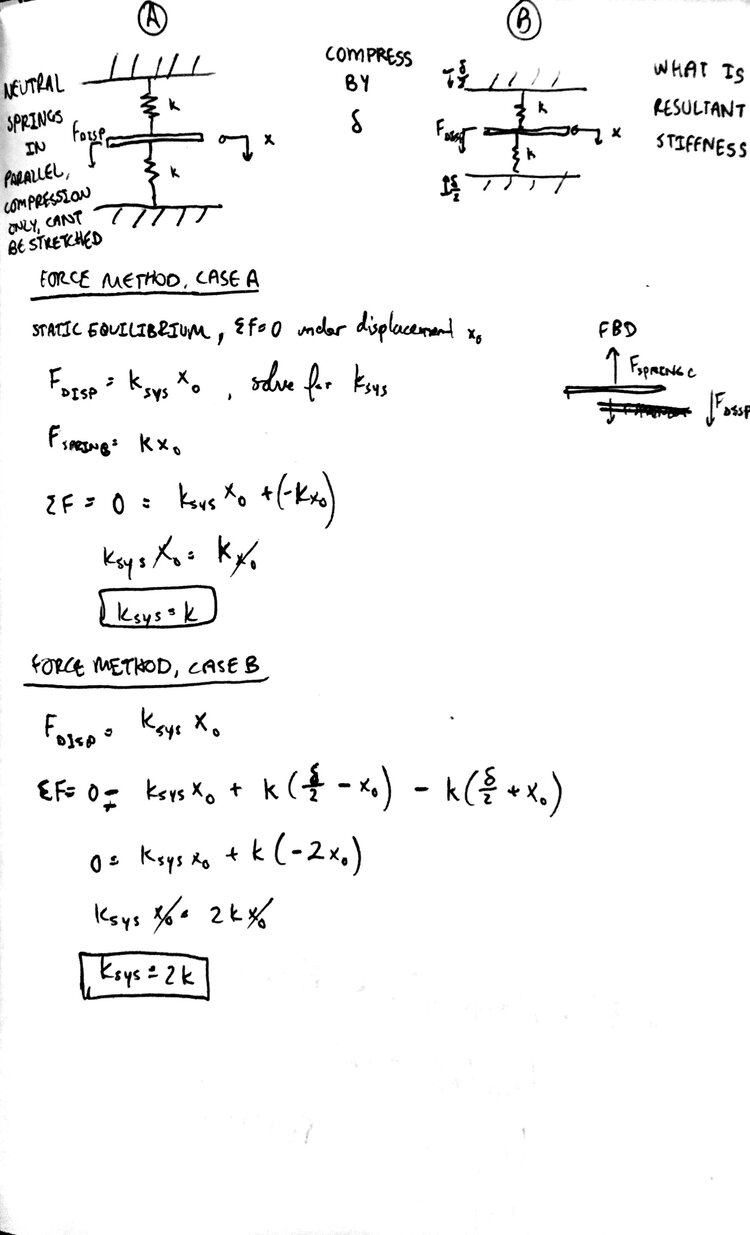 A
B
NEUTRAL
SPRINGS
IN
PARALLEL,
COMPRESSION
ONLY, CANT
BE STRETCHED
k
F_DISP
x
k
COMPRESS
BY
δ
δ/2
k
F_DISP
x
k
δ/2
WHAT IS
RESULTANT
STIFFNESS
FORCE METHOD, CASE A
STATIC EQUILIBRIUM, ΣF=0 under displacement x₀
F_DISP = k_sys x₀ , solve for k_sys
F_SPRING = kx₀
ΣF = 0 = k_sys x₀ + (-kx₀)
k_sys x₀ = k x₀
k_sys = k
FBD
F_SPRING C
F_DISP
FORCE METHOD, CASE B
F_DISP = k_sys x₀
ΣF = 0 = k_sys x₀ + k(δ/2 - x₀) - k(δ/2 + x₀)
0 = k_sys x₀ + k(-2x₀)
k_sys x₀ = 2k x₀
k_sys = 2k